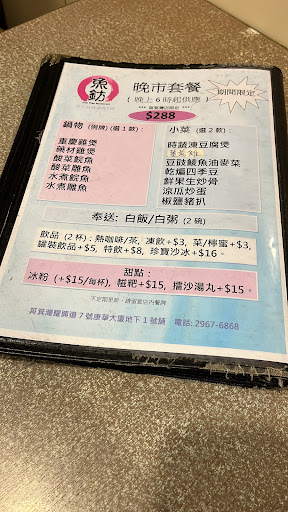 魚魴
晚市套餐
( 晚上6時起供應 )
期間限定
$288
鍋物 (例牌) (選1款) :
重慶雞煲
藥材雞煲
酸菜鯇魚
酸菜雕魚
水煮鯇魚
水煮雕魚
小菜 (選2款) :
時蔬凍豆腐煲
豆豉鯪魚油麥菜
乾煸四季豆
鮮果生炒骨
涼瓜炒蛋
椒鹽豬扒
奉送: 白飯/白粥 (2碗)
飲品 (2杯) : 熱咖啡/茶, 凍飲+$3, 菜/檸蜜+$3,
罐裝飲品+$5, 特飲+$8, 珍寶沙冰+$16。
甜點 :
冰粉 (+$15/每杯), 糍粑+$15, 擂沙湯丸+$15。
不定期更新，請留意店內餐牌
筲箕灣耀興道7號康華大廈地下1號舖 電話: 2967-6868